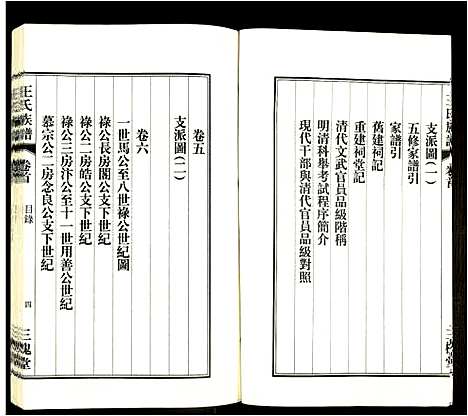 王氏族譜
卷首
支派圖(一)
五修家譜引
家譜引
舊建祠記
重建祠堂記
清代文武官員品級階稱
明清科舉考試程序簡介
現代干部與清代官員品級對照
三槐堂
卷五
支派圖(二)
卷六
一世馬公至八世祿公世紀圖
祿公長房閣公支下世紀
祿公二房皓公支下世紀
祿公三房汴公至十一世用善公世紀
慕宗公二房念良公支下世紀
王氏族譜
卷首
目錄
四
三槐堂